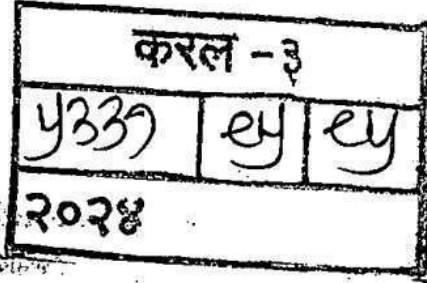 करल -३
५३३१ ९५ ९५
२०२४